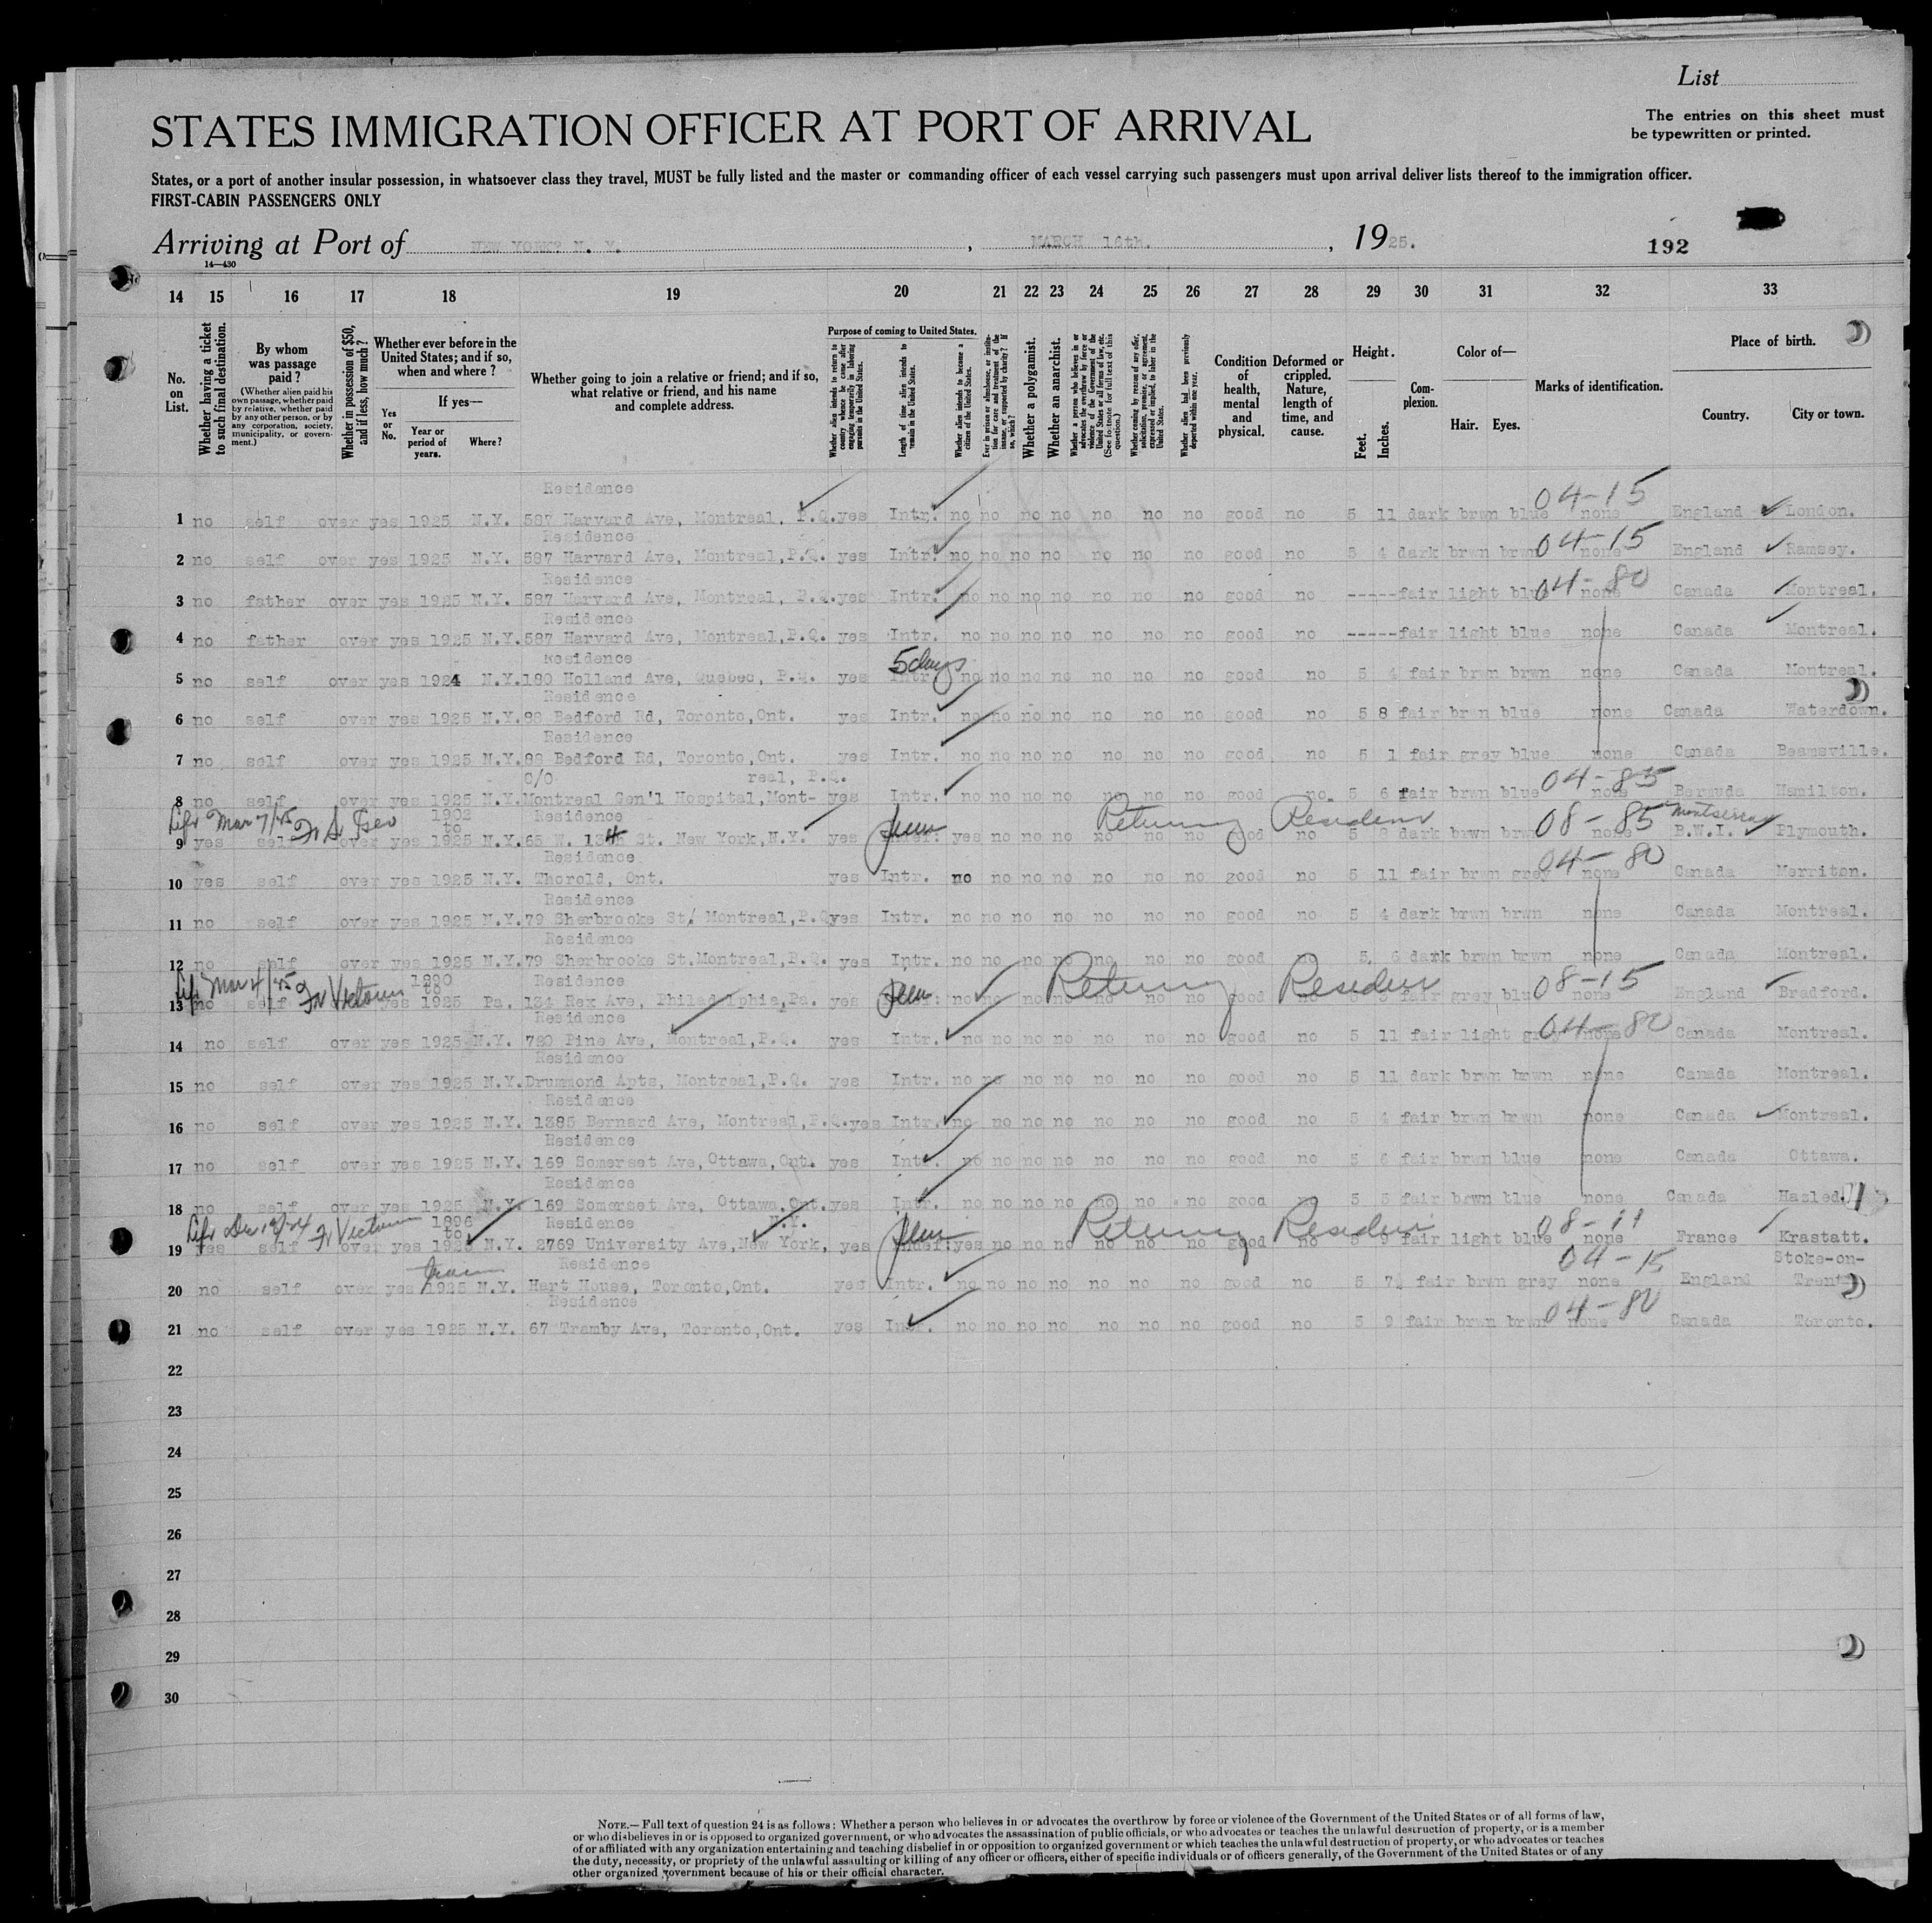 List
The entries on this sheet must
be typewritten or printed.
STATES IMMIGRATION OFFICER AT PORT OF ARRIVAL
States, or a port of another insular possession, in whatsoever class they travel, MUST be fully listed and the master or commanding officer of each vessel carrying such passengers must upon arrival deliver lists thereof to the immigration officer.
FIRST-CABIN PASSENGERS ONLY
Arriving at Port of NEW YORK? N. Y. , MARCH 16th. , 1925. 192
14—430
14 15 16 17 18 19 20 21 22 23 24 25 26 27 28 29 30 31 32 33
No. on List.
Whether having a ticket to such final destination.
By whom was passage paid?
(Whether alien paid his own passage, whether paid by relative, whether paid by any other person, or by any corporation, society, municipality, or government.)
Whether in possession of $50, and if less, how much?
Whether ever before in the United States; and if so, when and where?
Yes or No.
If yes—
Year or period of years.
Where?
Whether going to join a relative or friend; and if so, what relative or friend, and his name and complete address.
Purpose of coming to United States.
Whether alien intends to return to country whence he came after engaging temporarily in laboring pursuits in the United States.
Length of time alien intends to remain in the United States.
Whether alien intends to become a citizen of the United States.
Ever in prison or almshouse, or institution for care and treatment of the insane, or supported by charity? If so, which?
Whether a polygamist.
Whether an anarchist.
Whether a person who believes in or advocates the overthrow by force or violence of the Government of the United States or all forms of law, etc. (See footnote for full text of this question.)
Whether coming by reason of any offer, solicitation, promise, or agreement, expressed or implied, to labor in the United States.
Whether alien had been previously deported within one year.
Condition of health, mental and physical.
Deformed or crippled. Nature, length of time, and cause.
Height.
Feet. Inches.
Complexion.
Color of—
Hair. Eyes.
Marks of identification.
Place of birth.
Country. City or town.
Residence 04-15
1 no self over yes 1925 N.Y. 587 Harvard Ave, Montreal, P.Q. yes Intr. no no no no no no no good no 5 11 dark brwn blue none England London.
Residence 04-15
2 no self over yes 1925 N.Y. 587 Harvard Ave, Montreal,P.Q. yes Intr. no no no no no no no good no 5 4 dark brwn brwn none England Ramsey.
Residence 04-80
3 no father over yes 1925 N.Y. 587 Harvard Ave, Montreal, P.Q. yes Intr. no no no no no no no good no ----- fair light blue none Canada Montreal.
Residence
4 no father over yes 1925 N.Y. 587 Harvard Ave, Montreal,P.Q. yes Intr. no no no no no no no good no ----- fair light blue none Canada Montreal.
Residence 5 days
5 no self over yes 1924 N.Y. 180 Holland Ave, Quebec, P.Q. yes Intr. no no no no no no no good no 5 4 fair brwn brwn none Canada Montreal.
Residence
6 no self over yes 1925 N.Y. 88 Bedford Rd, Toronto,Ont. yes Intr. no no no no no no no good no 5 8 fair brwn blue none Canada Waterdown.
Residence
7 no self over yes 1925 N.Y. 88 Bedford Rd, Toronto,Ont. yes Intr. no no no no no no no good no 5 1 fair grey blue none Canada Beamsville.
C/O real, P.Q. 04-85
8 no self over yes 1925 N.Y. Montreal Gen'l Hospital,Mont- yes Intr. no no no no no no no good no. 5 6 fair brwn blue none Bermuda Hamilton.
Mar 7/25 1902 to Residence Returning Resident 08-85 Montserrat
9 yes self over yes 1925 N.Y. 65 W. 134 St. New York,N.Y. yes yes no no no no no no good no 5 8 dark brwn brwn none B.W.I. Plymouth.
Residence 04-80
10 yes self over yes 1925 N.Y. Thorold, Ont. yes Intr. no no no no no no no good no 5 11 fair brwn grey none Canada Merriton.
Residence
11 no self over yes 1925 N.Y. 79 Sherbrooke St. Montreal,P.Q. yes Intr. no no no no no no no good no 5 4 dark brwn brwn none Canada Montreal.
Residence
12 no self over yes 1925 N.Y. 79 Sherbrooke St.Montreal,P.Q. yes Intr. no no no no no no no good no 5 6 dark brwn brwn none Canada Montreal.
Mar 4/25 Victoria to Residence Returning Resident 08-15
13 no self yes 1925 Pa. 134 Rex Ave, Philadelphia,Pa. yes no no no no no no no good no 5 fair grey blue none England Bradford.
Residence 04-80
14 no self over yes 1925 N.Y. 720 Pine Ave, Montreal,P.Q. yes Intr. no no no no no no no good no 5 11 fair light grey none Canada Montreal.
Residence
15 no self over yes 1925 N.Y. Drummond Apts, Montreal,P.Q. yes Intr. no no no no no no no good no 5 11 dark brwn brwn none Canada Montreal.
Residence
16 no self over yes 1925 N.Y. 1385 Bernard Ave, Montreal,P.Q. yes Intr. no no no no no no no good no 5 4 fair brwn brwn none Canada Montreal.
Residence
17 no self over yes 1925 N.Y. 169 Somerset Ave,Ottawa,Ont. yes Intr. no no no no no no no good no 5 6 fair brwn blue none Canada Ottawa.
Residence
18 no self over yes 1925 N.Y. 169 Somerset Ave, Ottawa,Ont. yes Intr. no no no no no no no good no 5 5 fair brwn blue none Canada
Dec 19/24 Victoria 1896 to Residence N.Y. Returning Resident 08-11
19 yes self over yes 1925 N.Y. 2769 University Ave,New York, yes Indef. yes no no no no no no good no 5 9 fair light blue none France Krastatt.
Residence 04-15 Stoke-on-
20 no self over yes 1925 N.Y. Hart House, Toronto,Ont. yes Intr. no no no no no no no good no 5 7½ fair brwn grey none England Trent
Residence 04-80
21 no self over yes 1925 N.Y. 67 Tramby Ave, Toronto,Ont. yes Intr. no no no no no no no good no 5 9 fair brwn brwn none Canada Toronto.
22
23
24
25
26
27
28
29
30
NOTE.—Full text of question 24 is as follows: Whether a person who believes in or advocates the overthrow by force or violence of the Government of the United States or of all forms of law,
or who disbelieves in or is opposed to organized government, or who advocates the assassination of public officials, or who advocates or teaches the unlawful destruction of property, or is a member
of or affiliated with any organization entertaining and teaching disbelief in or opposition to organized government or which teaches the unlawful destruction of property, or who advocates or teaches
the duty, necessity, or propriety of the unlawful assaulting or killing of any officer or officers, either of specific individuals or of officers generally, of the Government of the United States or of any
other organized government because of his or their official character.